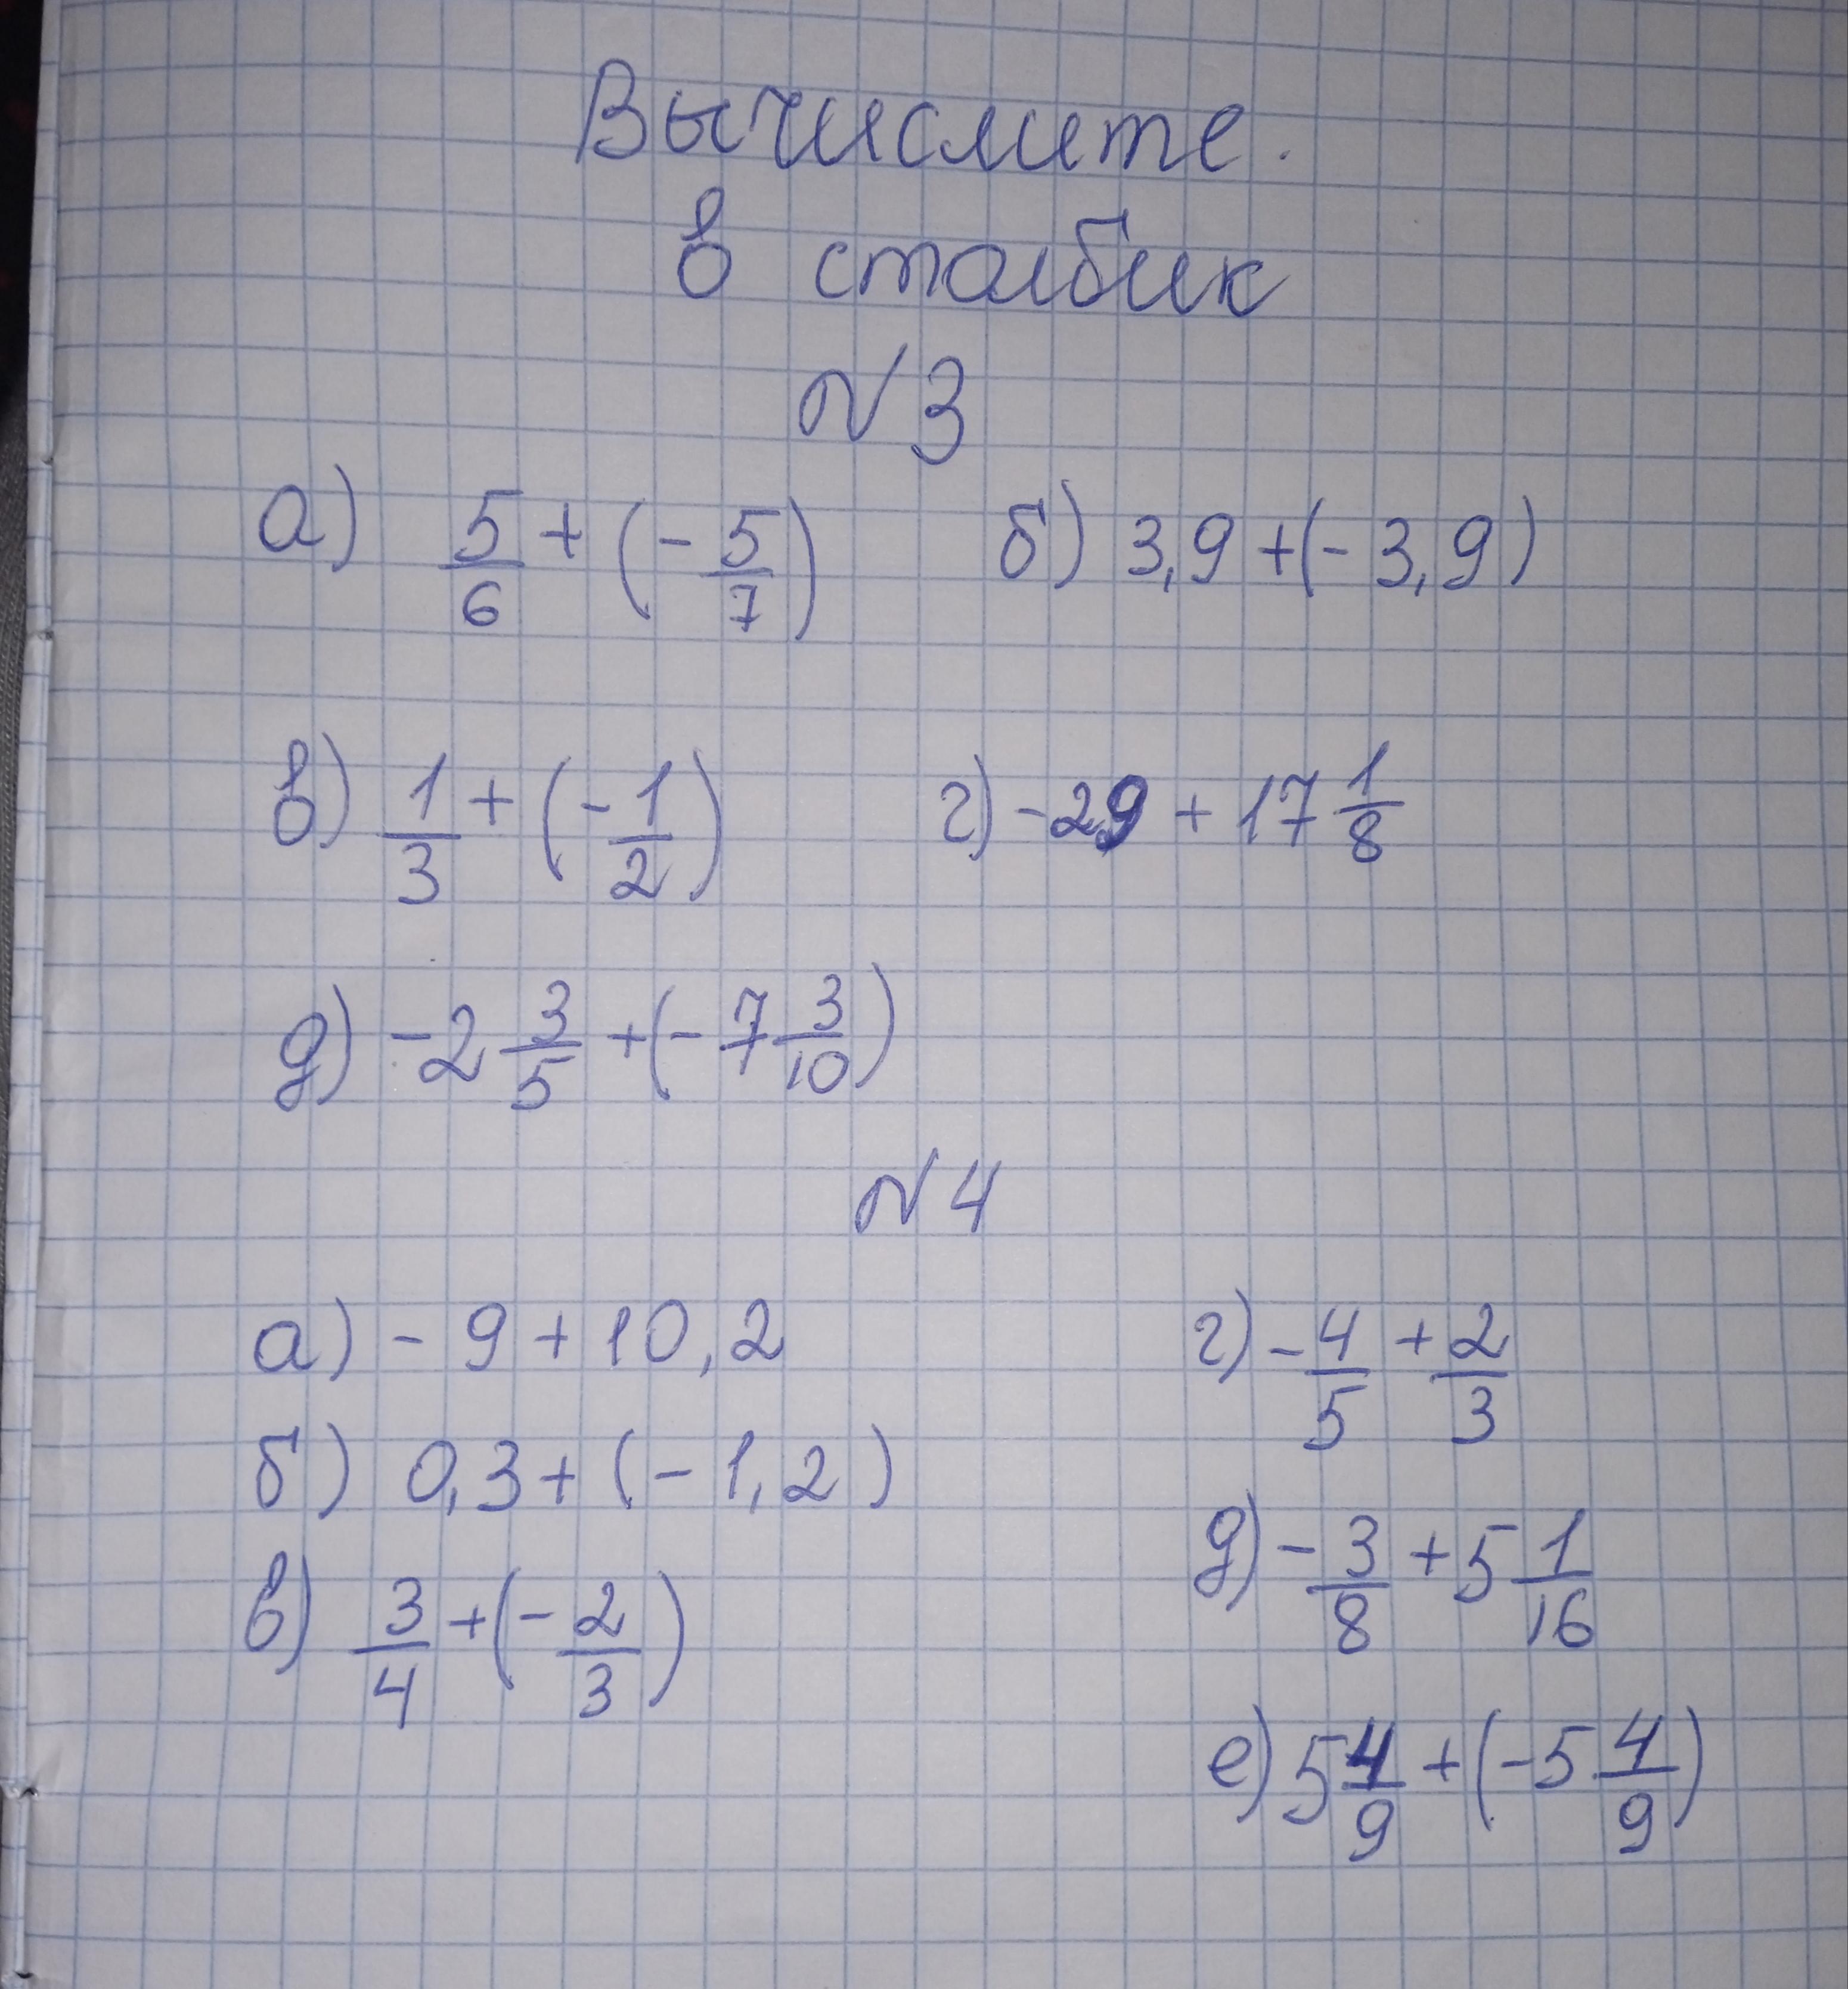 Вычислите.
в столбик
№3
а) 5/6 + (-5/7) б) 3,9 + (-3,9)
в) 1/3 + (-1/2) г) -29 + 17 1/8
д) -2 3/5 + (-7 3/10)
№4
а) - 9 + 10,2 г) -4/5 + 2/3
б) 0,3 + (-1,2)
д) -3/8 + 5 1/16
в) 3/4 + (-2/3)
е) 5 4/9 + (-5 4/9)